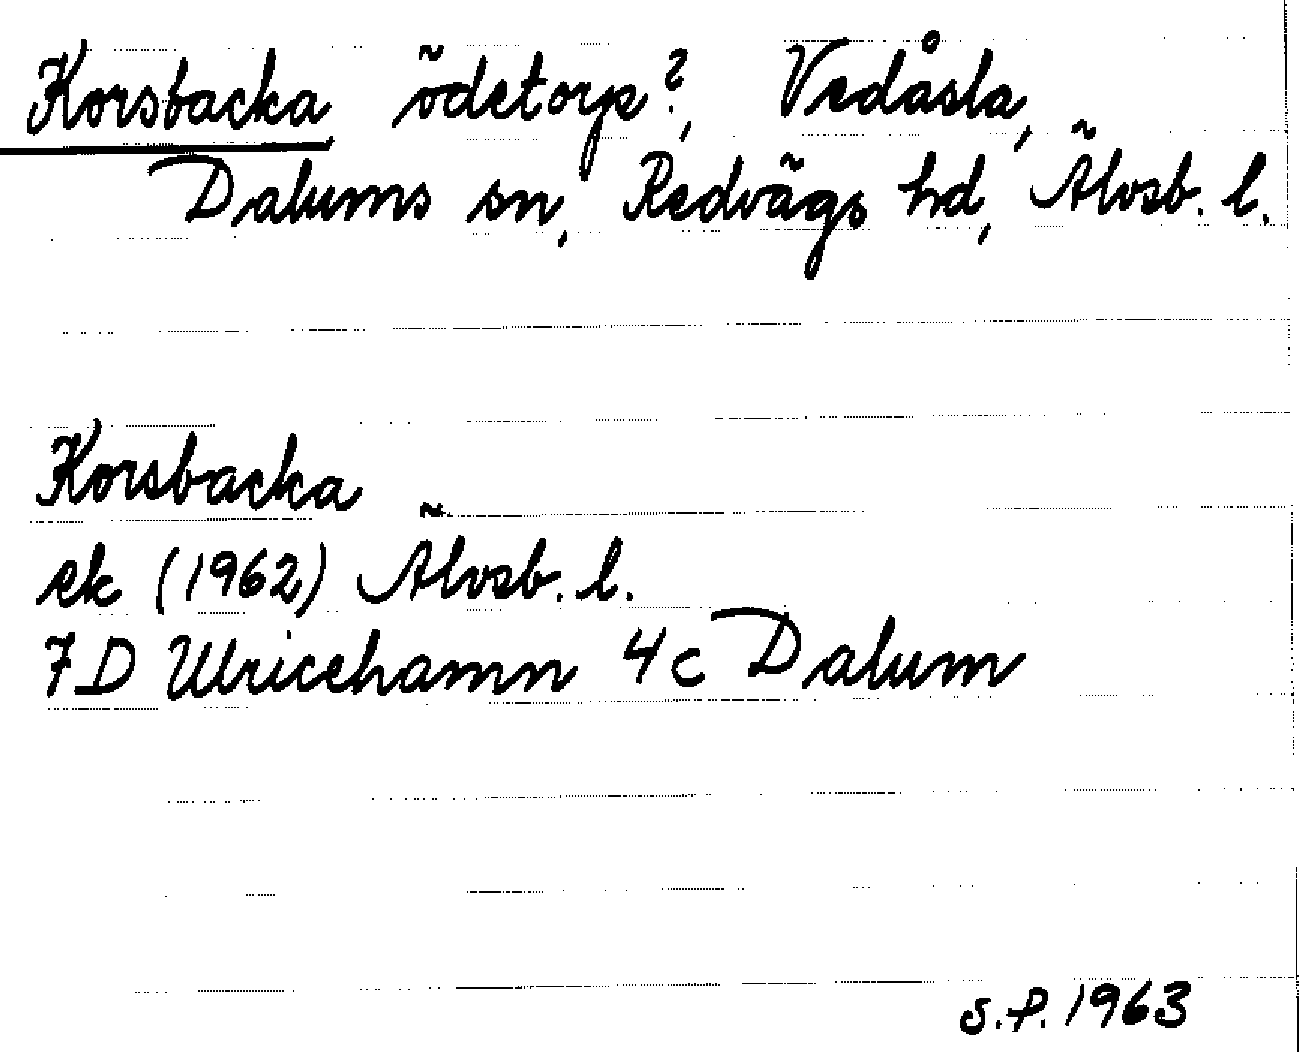 Korsbacka, ödetorp?, Vedåsla,
Dalums sn, Redvägs hd, Älvsb. l.
Korsbacka
ek (1962) Älvsb. l.
7D Ulricehamn 4c Dalum
S.P. 1963